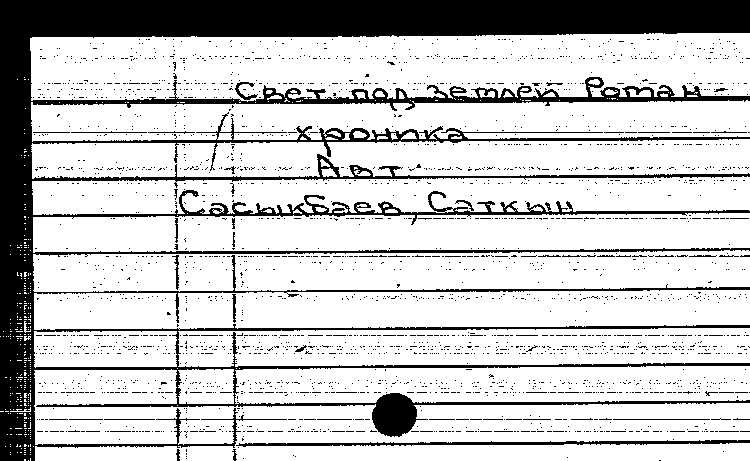 Свет под землей Роман-
хроника
Авт.:
Сасыкбаев, Саткын